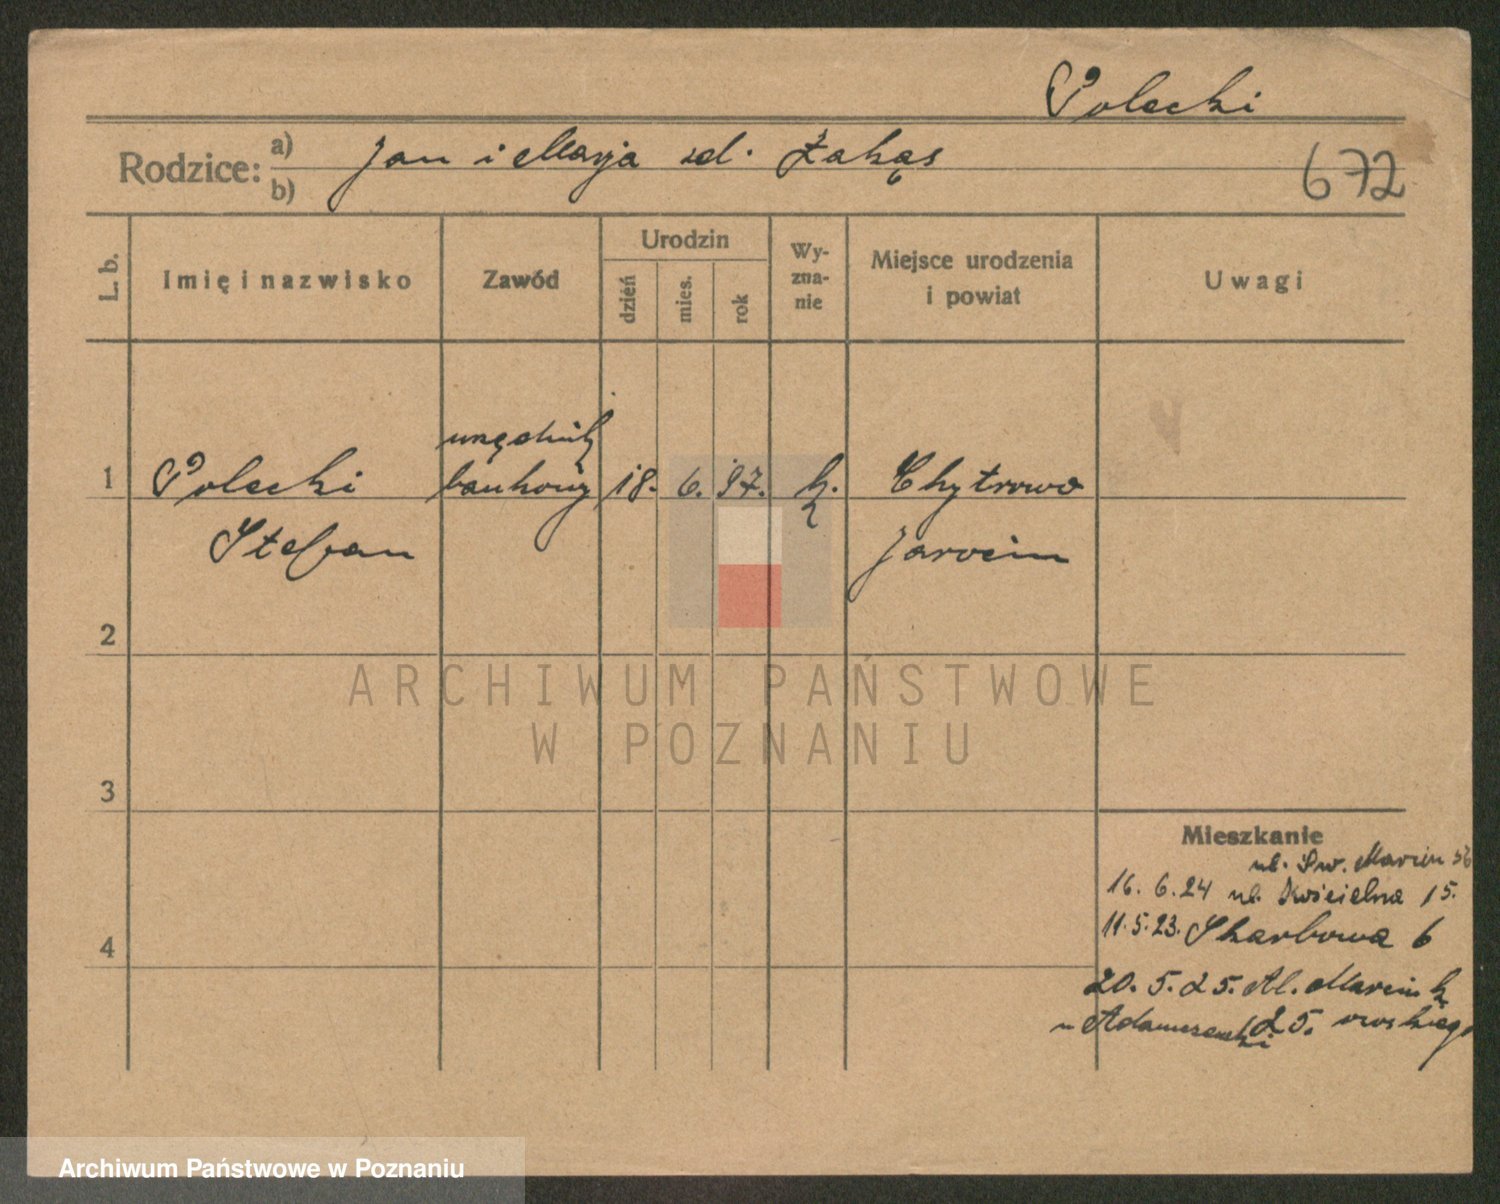 Polecki
Rodzice: a) Jan i Marja zd. Żakąs
b)
672
L. b.
Imię i nazwisko
Zawód
Urodzin
dzień
mies.
rok
Wy-
zna-
nie
Miejsce urodzenia
i powiat
Uwagi
urzędnik
1 Polecki bankowy 18. 6. 97. k. Chytrowo
Stefan Jarocin
2
ARCHIWUM PAŃSTWOWE
W POZNANIU
3
Mieszkanie
ul. Św. Marcin
16. 6. 24 ul. Kościelna 15.
11. 5. 23. Skarbowa 6
4
20. 5. 25. Al. Marcink
25. owskiego
Archiwum Państwowe w Poznaniu